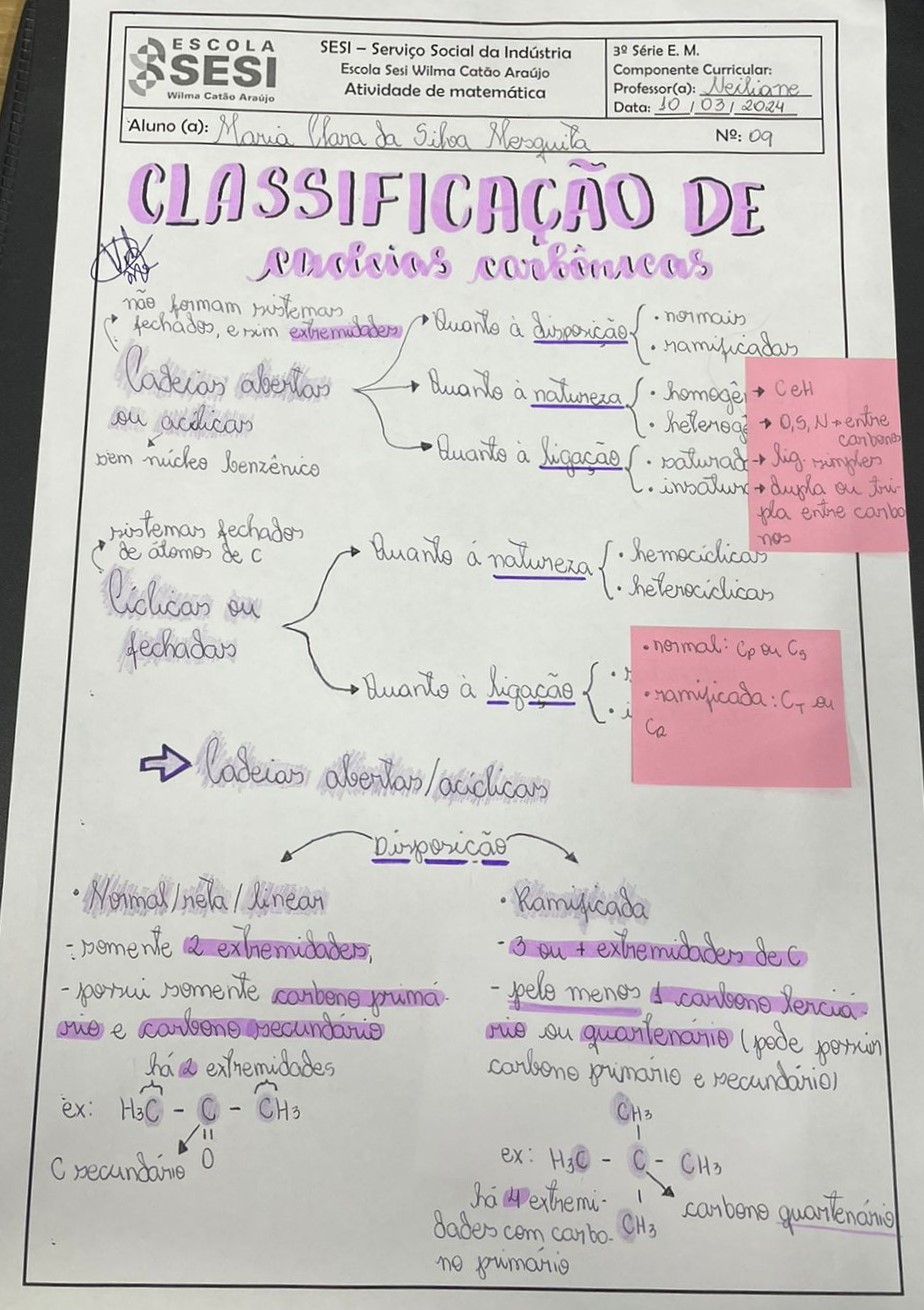 ESCOLA
SESI
Wilma Catão Araújo
SESI – Serviço Social da Indústria
Escola Sesi Wilma Catão Araújo
Atividade de matemática
3º Série E. M.
Componente Curricular:
Professor(a): Neiliane
Data: 10 / 03 / 2024
Aluno (a): Maria Clara da Silva Mesquita
Nº: 09
CLASSIFICAÇÃO DE
cadeias carbônicas
não formam sistemas
fechados, e sim extremidades
Cadeias abertas
ou acíclicas
sem núcleo benzênico
Quanto à disposição
• normais
• ramificadas
Quanto à natureza
• homogê
• heterog
Quanto à ligação
• saturad
• insatur
→ C e H
→ O, S, N → entre
carbonos
→ lig. simples
→ dupla ou tri-
pla entre carbo
nos
sistemas fechados
de átomos de C
Cíclicas ou
fechadas
Quanto á natureza
• hemocíclicas
• heterocíclicas
Quanto à ligação
• normal: CP ou CS
• ramificada: CT ou
CQ
⇒ Cadeias abertas/acíclicas
Disposição
• Normal/reta/linear
- somente 2 extremidades;
- possui somente carbono primá-
rio e carbono secundário
há 2 extremidades
ex: H3C - C - CH3
O
C secundário
• Ramificada
- 3 ou + extremidades de C
- pelo menos 1 carbono terciá-
rio ou quartenário (pode possuir
carbono primário e secundário)
CH3
ex: H3C - C - CH3
CH3
carbono quartenário
há 4 extremi-
dades com carbo-
no primário